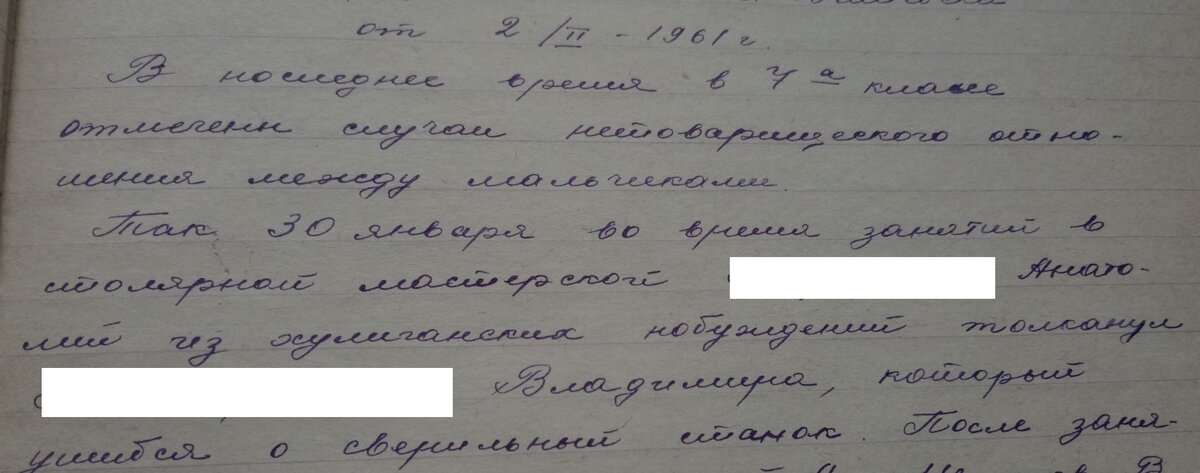 от 2/II - 1961 г.
В последнее время в 7 а класе
отмечены случаи нетоварищеского отно-
шения между мальчиками.
Так 30 января во время занятий в
столярной мастерской Анато-
лий из хулиганских побуждений толканул
Владимира, который
ушибся о сверильный станок. После заня-